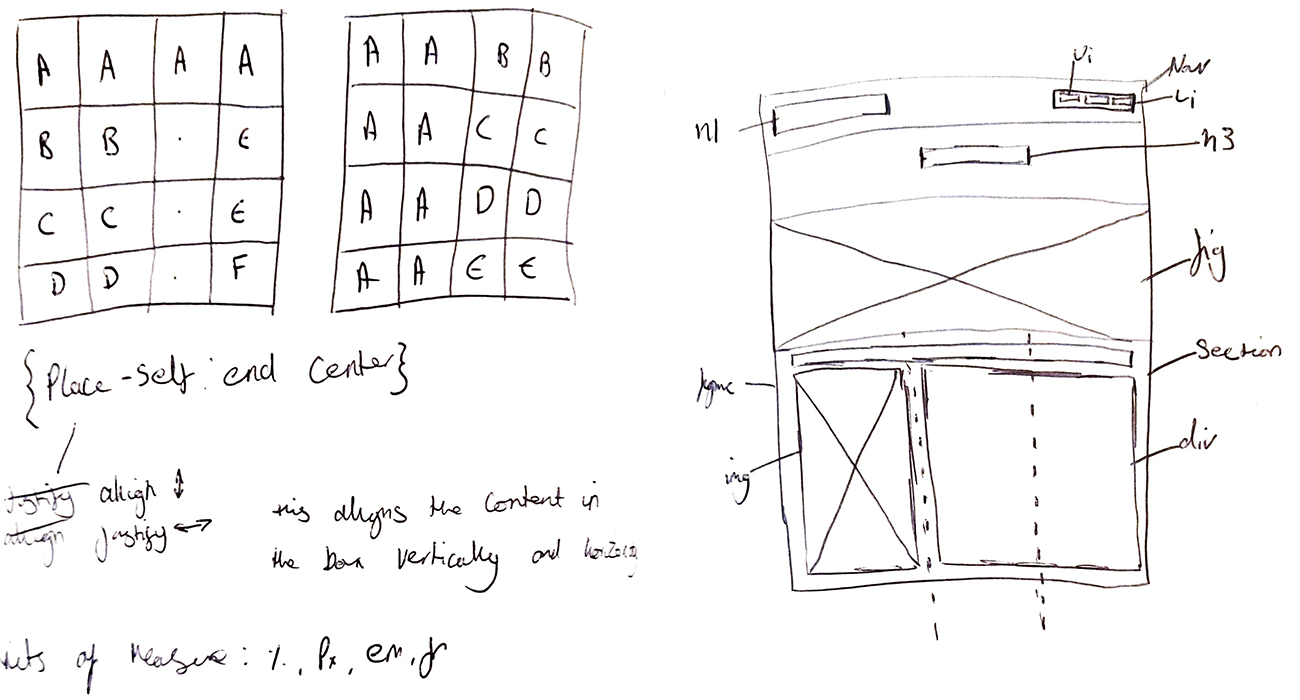 A A A A
B B . E
C C . E
D D . F
A A B B
A A C C
A A D D
A A E E
{Place-self: end center}
Justify align ↕
align justify ↔
this aligns the content in
the box vertically and
of measure: %, Px, em, fr
Ui
Nav
Li
h1
h3
fig
Section
img
div